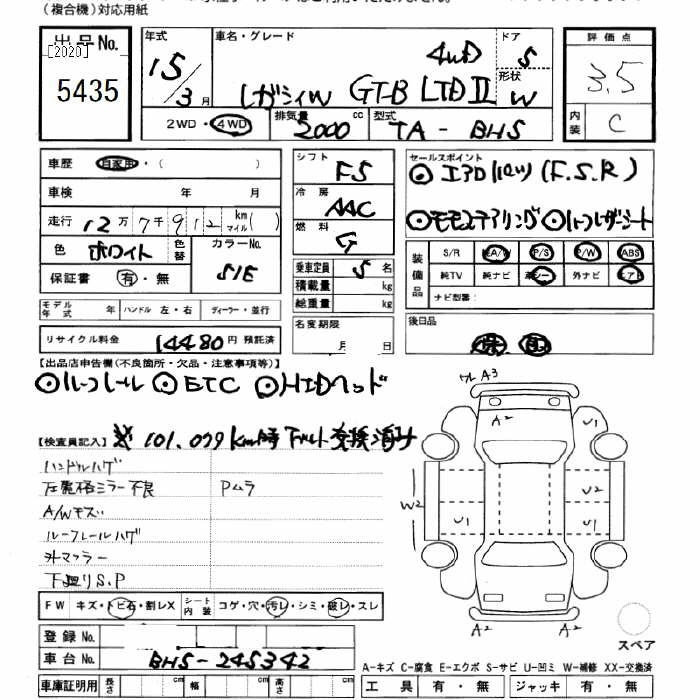 (複合機)対応用紙
出品No.
[2020]
5435
年式
15/3月
車名・グレード
レガシィW GT-B LTDⅡ
4WD
ドア
5
形状
W
2WD・4WD
排気量
2000
cc
型式
TA-BH5
評価点
3.5
内装
C
車歴 自家用・( )
車検 年 月
走行 12万7千912 km マイル( )
色 ホワイト
色替
カラーNo.
51E
保証書 有・無
シフト
F5
冷房
AAC
燃料
G
乗車定員 5名
積載量 kg
総重量 kg
セールスポイント
◎エアロパーツ(F.S.R)
◎モモステアリング ◎ハーフレザーシート
装備品
S/R 純A/W P/S P/W ABS
純TV 純ナビ 革シート 外ナビ エアB
ナビ型番:
モデル年式 年 ハンドル 左・右 ディーラー・並行
リサイクル料金 14480円 預託済
名変期限
月 日
後日品
保 取
【出品店申告欄(不良箇所・欠品・注意事項等)】
◎ルーフレール ◎ETC ◎HIDヘッド
【検査員記入】 ※101,079Km時ベルト交換済み
ハンドルハゲ
左電格ミラー不良 Pムラ
A/Wキズ
ルーフレールハゲ
外マフラー
下廻りS.P
ワレA3
A2
U1
W2
U2
U1
U1
A2
A2
FW キズ・トビ石・割レX
シート内装 コゲ・穴・汚レ・シミ・破レ・スレ
登録No.
車台No. BH5-245342
スペア
A-キズ C-腐食 E-エクボ S-サビ U-凹ミ W-補修 XX-交換済
車庫証明用 長さ cm 幅 cm 高さ cm
工具 有・無 ジャッキ 有・無